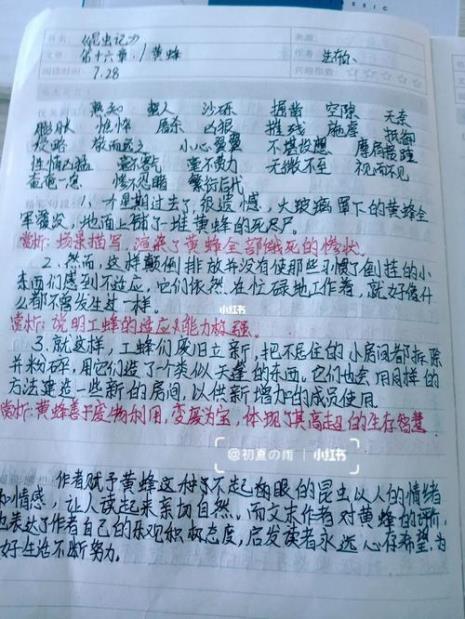 书名 《昆虫记》
文章 第十六章/黄蜂 作者
阅读时间 7.28
熟知 蜇人 沙砾 掘凿 空隙 无奈
膨胀 憔悴 屠杀 凶狠 摧残 施虐 抵御
小心翼翼 不堪设想 摩肩接踵
性情凶猛 毫不客气 毫不费力 无微不至 视而不见
奄奄一息 惨不忍睹 繁衍后代
1、个星期过去了,很遗憾,火玻璃罩下的黄蜂全
军覆没,地面上铺了一堆黄蜂的死尸。
赏析:场景描写,渲染了黄蜂全部饿死的惨状。
2、然而,这样颠倒排放并没有使那些习惯了倒挂的小
东西们感到不适应,它们依然在忙碌地工作着,就好像什
么都不曾发生过一样。
赏析:说明工蜂的适应能力较强。
3、就这样,工蜂们废旧立新,把不居住的小房间都拆除
并粉碎,用它们造了个类似天蓬的东西。它们也会用同样的
方法建造一些新的房间,以供新增加的成员使用。
赏析:黄蜂善于废物利用,变废为宝,体现了其高超的生存智慧.
@初夏の雨 | 小红书
小红书
作者赋予黄蜂这种了不起眼的昆虫以人的情绪
和情感,让人读起来亲切自然。而文末作者对黄蜂的评价,
也表达了作者自己的乐观积极态度,启发读者永远心存希望,为
好生活不断努力。